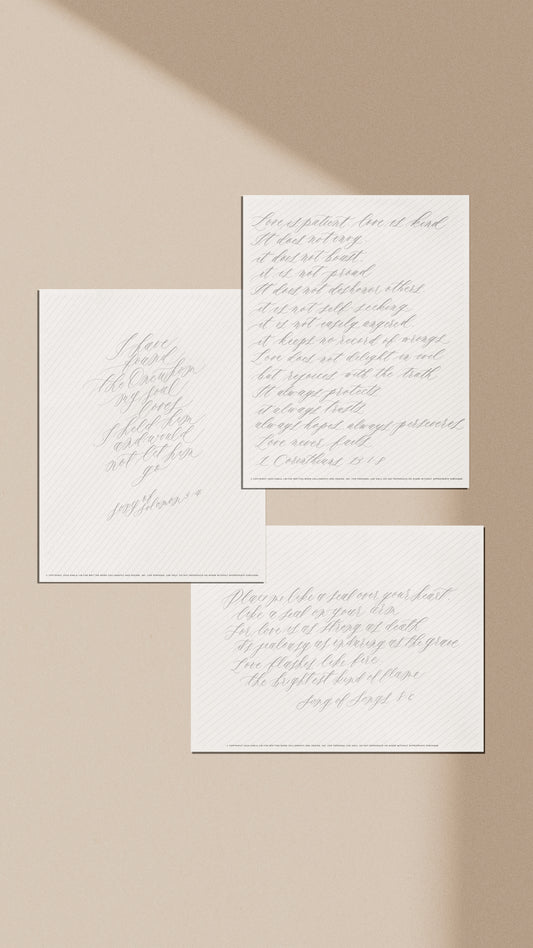 Love is patient, love is kind
It does not envy
it does not boast
it is not proud
It does not dishonor others
it is not self seeking
it is not easily angered
it keeps no record of wrongs
Love does not delight in evil
but rejoices with the truth
It always protects
it always trusts
always hopes, always perseveres
Love never fails
1 Corinthians 13:
I have
found
the One whom
my soul
loves
I held him
and would
not let him
go
Song of
Solomon 3:4
Place me like a seal over your heart
like a seal on your arm
for love is as strong as death
its jealousy as enduring as the grave
Love flashes like fire
the brightest kind of flame
Song of Songs 8:6